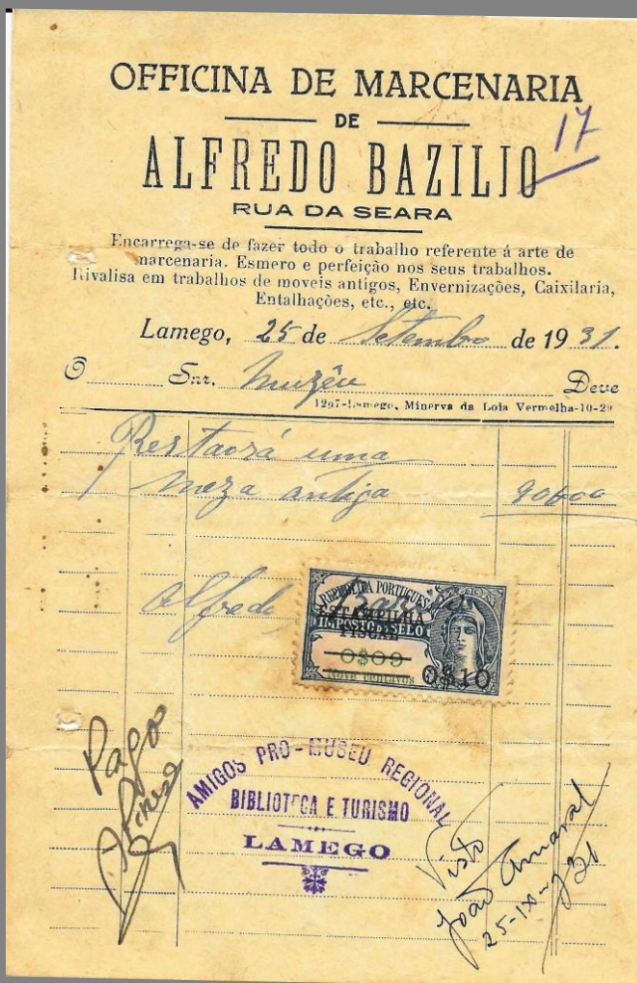 OFFICINA DE MARCENARIA
DE
ALFREDO BAZILIO
17
RUA DA SEARA
Encarrega-se de fazer todo o trabalho referente á arte de
marcenaria. Esmero e perfeição nos seus trabalhos.
Rivalisa em trabalhos de moveis antigos, Envernizações, Caixilaria,
Entalhações, etc., etc.
Lamego, 25 de Setembro de 1931.
O Snr. Muzêu Deve
1297-Lamego, Minerva da Loja Vermelha-10-29
Restaorá uma
meza antiga 90$00
Alfredo Bazilio
REPUBLICA PORTUGUESA
ESTAMPILHA
FISCAL
IMPOSTO DO SELO
0$09
0$10
NOVE CENTAVOS
Pago
AMIGOS PRO-MUSEU REGIONAL
BIBLIOTECA E TURISMO
LAMEGO
Visto
João Amaral
25-IX-931